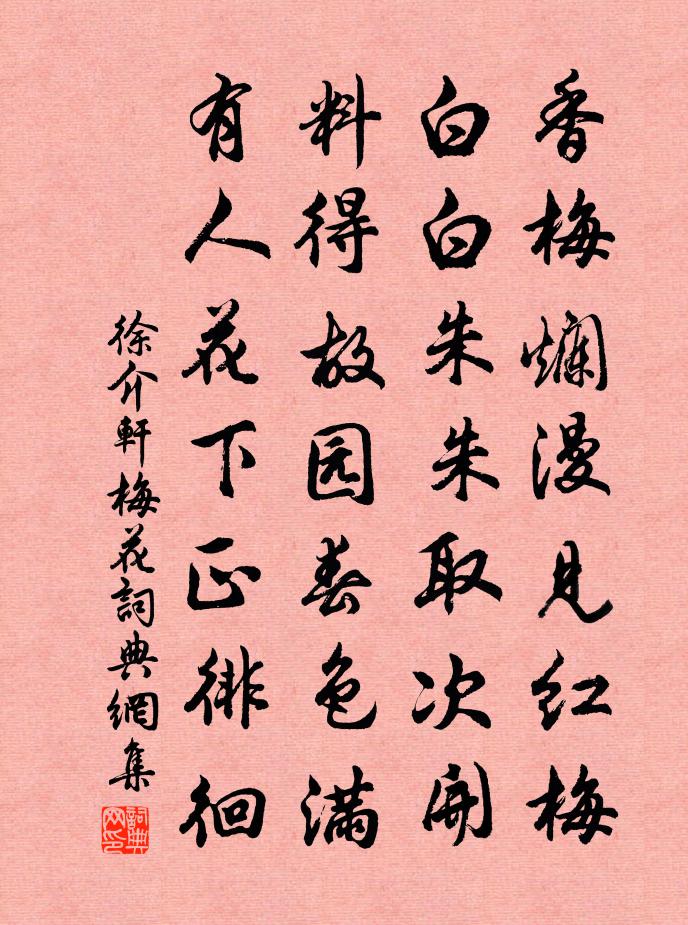 香梅烂漫见红梅
白白朱朱取次開
料得故园春色满
有人花下正徘徊
徐介軒梅花詞典網集
詞典网印